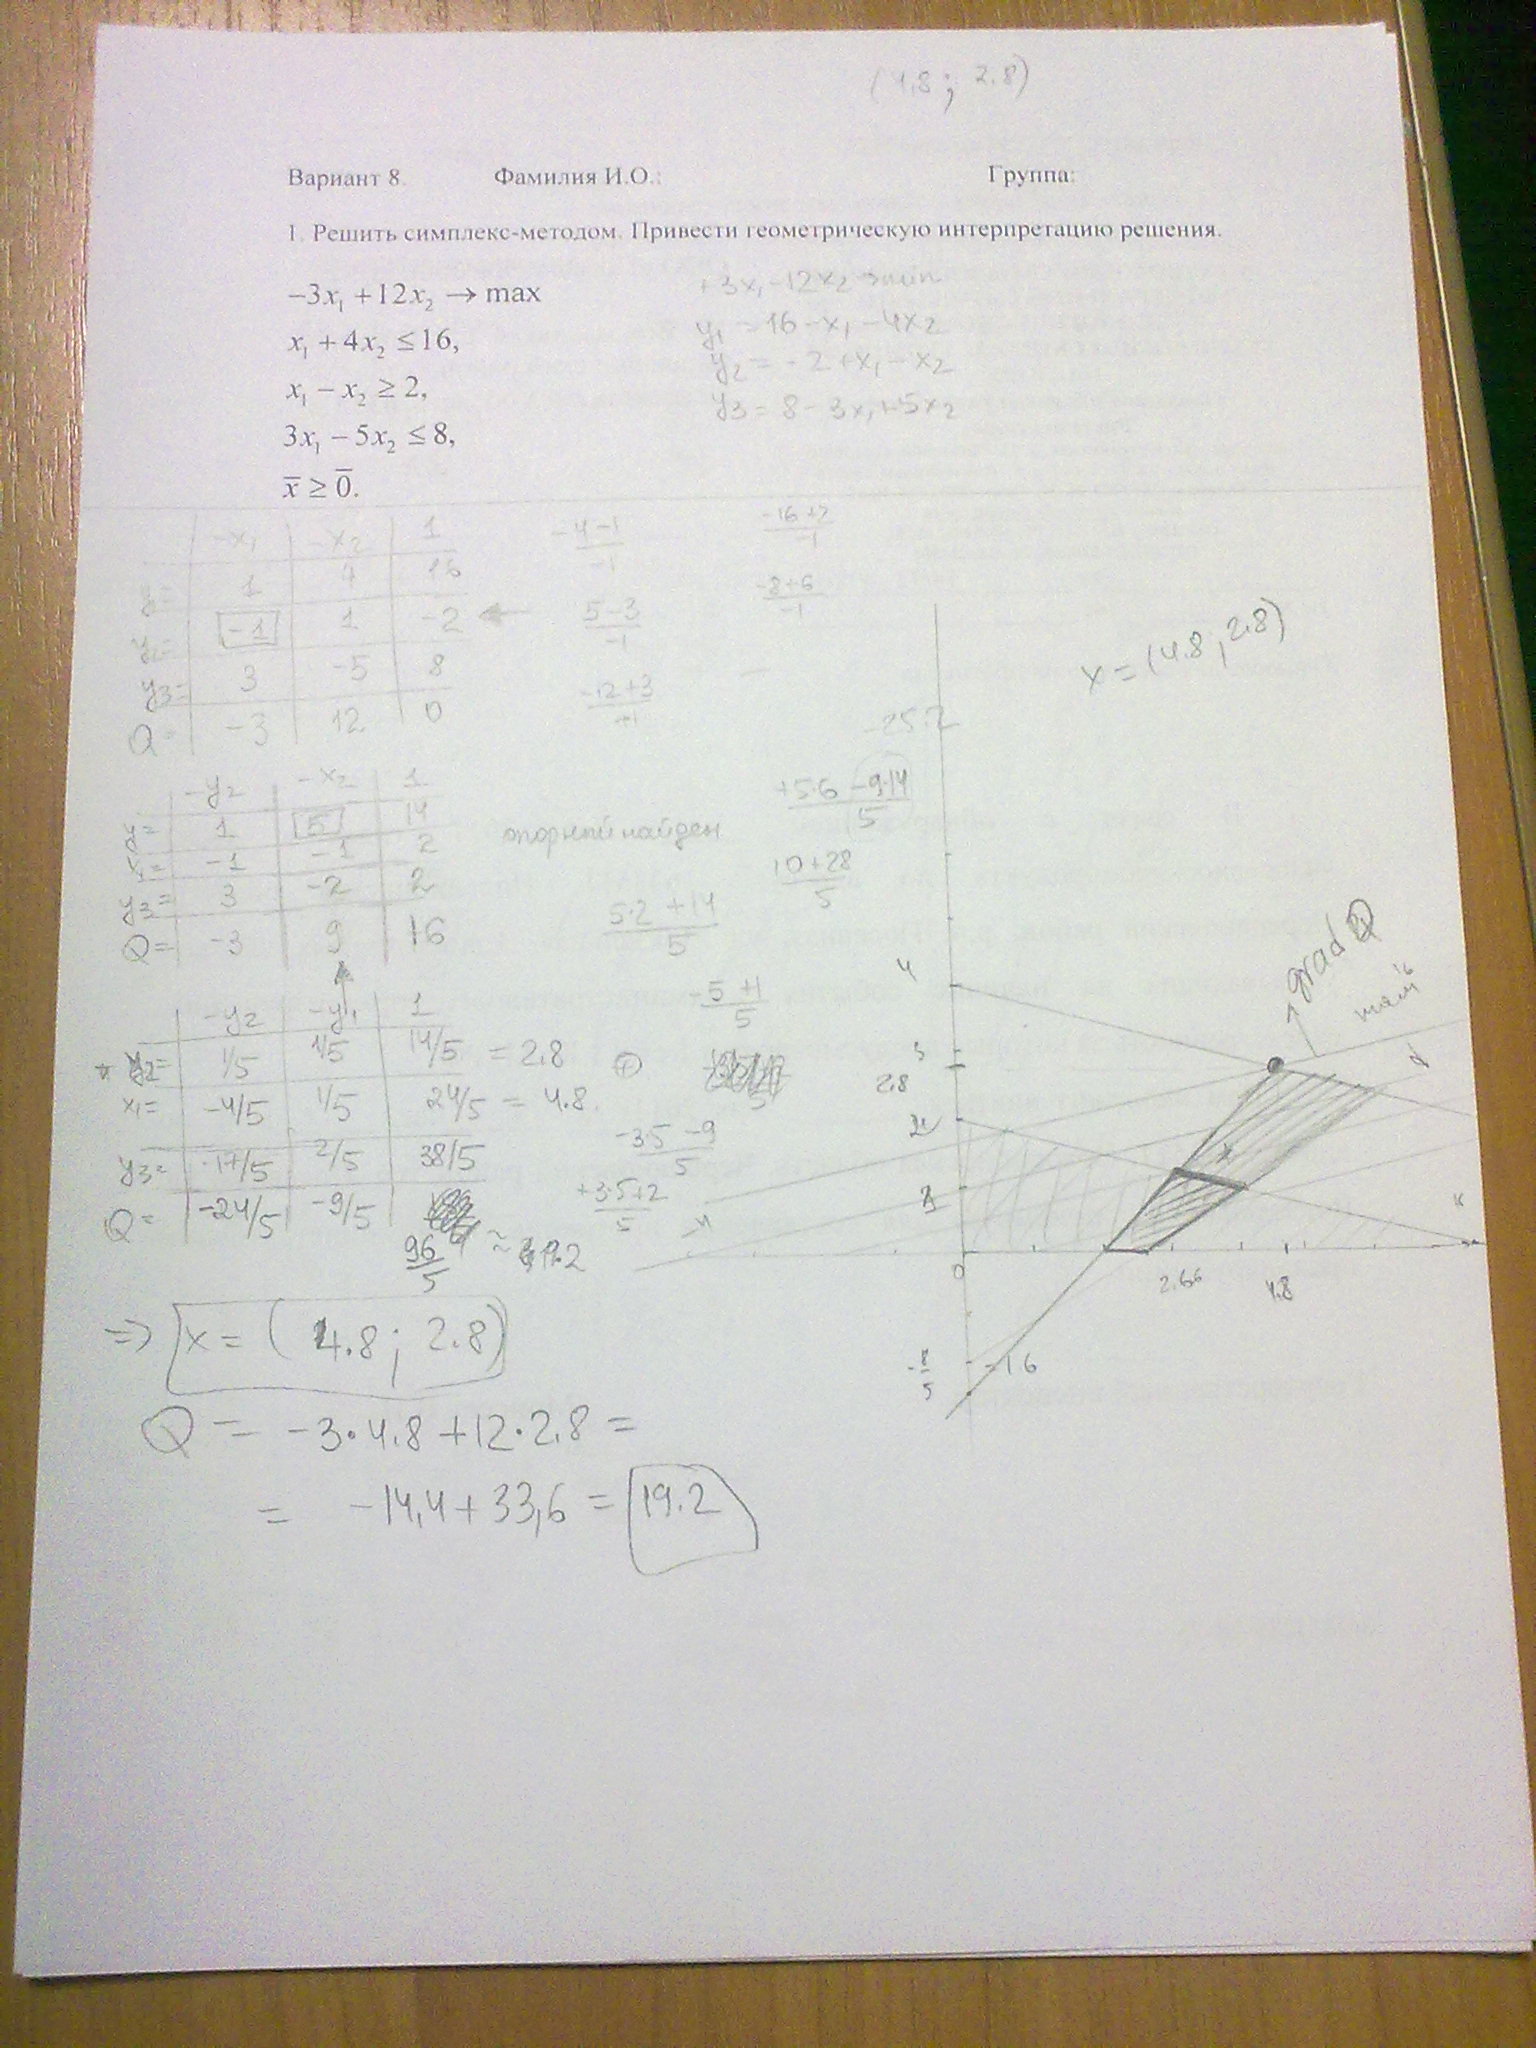 (4.8 ; 2.8)
Вариант 8. Фамилия И.О.: Группа:
1. Решить симплекс-методом. Привести геометрическую интерпретацию решения.
−3x₁ +12x₂ → max
x₁ + 4x₂ ≤ 16,
x₁ − x₂ ≥ 2,
3x₁ − 5x₂ ≤ 8,
x̄ ≥ 0̄.
+3x₁ -12x₂ → min
y₁ = 16 - x₁ - 4x₂
y₂ = -2 + x₁ - x₂
y₃ = 8 - 3x₁ + 5x₂
-x₁ -x₂ 1
y₁= 1 4 16
y₂= -1 1 -2 ←
y₃= 3 -5 8
Q= -3 12 0
-4-1 / -1
5-3 / -1
-12+3 / +1
-16+2 / -1
-8+6 / -1
-y₂ -x₂ 1
y₁= 1 5 14
x₁= -1 -1 2
y₃= 3 -2 2
Q= -3 9 16
опорный найден
-25.2
+5·6 -9·14 / 5
10+28 / 5
5·2 +14 / 5
-5 +1 / 5
-3·5 -9 / 5
+3·5+2 / 5
-y₂ -y₁ 1
1/5 1/5 14/5 = 2.8
x₁= -4/5 1/5 24/5 = 4.8
y₃= -17/5 2/5 38/5
Q= -24/5 -9/5
96/5 ≈
=> x = ( 4.8 ; 2.8)
Q = -3·4.8 +12·2.8 =
= -14,4 + 33,6 = 19.2
x = (4.8 ; 2.8)
grad Q
4
3
2.8
2
0
2.66
4.8
-8/5
-1.6